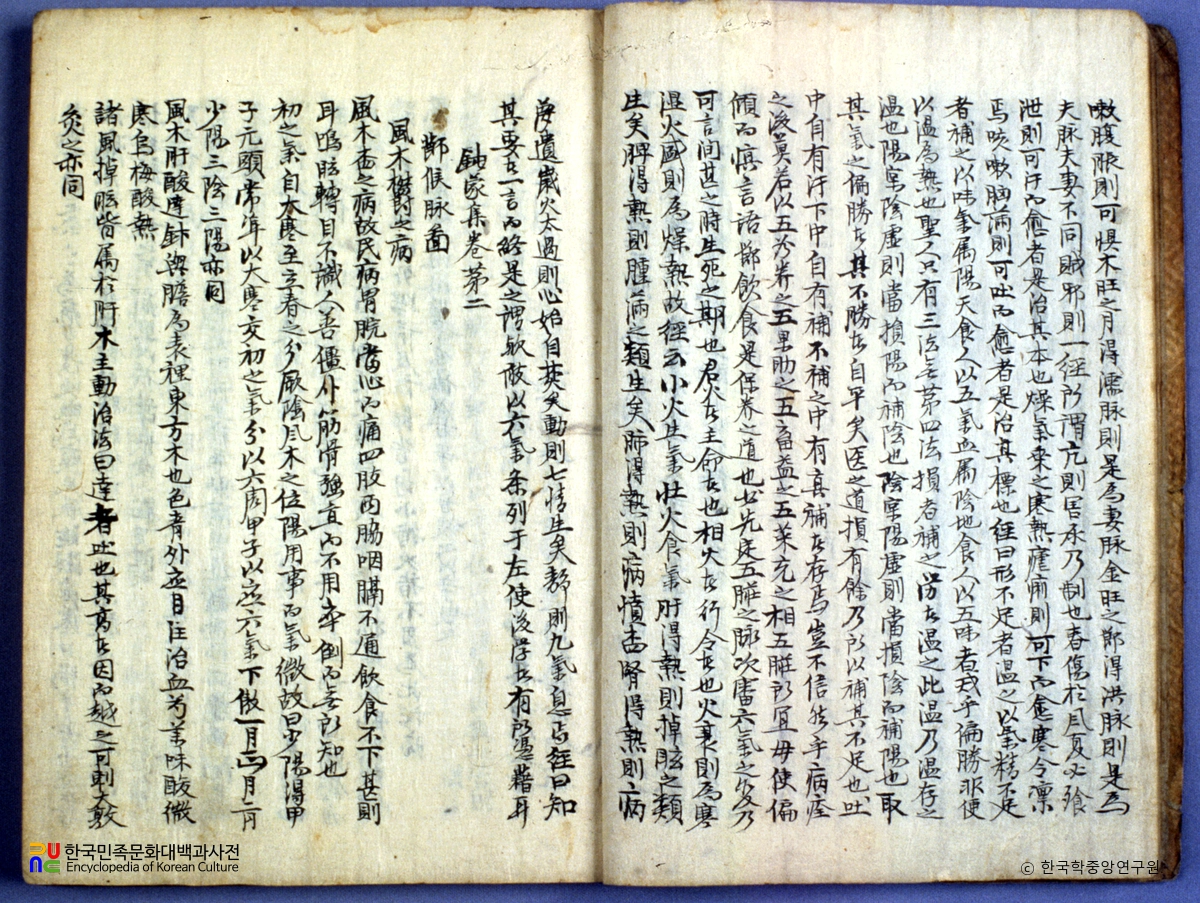 嗽腹脹則可惧木旺之月得濡脉則是為妻脉金旺之鄰得洪脉則是為
夫脉夫妻不同賊邪則一經所謂亢則害承乃制也春傷於風夏必飱
泄則可汗而愈者是治其本也燥氣来之寒熱瘧痢則可下而愈寒令凛
焉咳嗽胸满則可吐而愈者是治其標也經曰形不足者温之以氣精不足
者補之以味氣属陽天食人以五氣血属陰地食人以五味者戒乎偏勝非便
以温為熱也聖人只有三法無苐四法損者補之労者温之此温乃温存之
温也陽甚陰虚則當損陽而補陰也陰甚陽虚則當損陰而補陽也取
其氣之偏勝者其不勝者自平矣医之道損有餘乃所以補其不足也吐
中自有汗下中自有補不補之中有真補者存焉豈不信然乎病痊
之後莫若以五穀养之五果助之五畜益之五菜充之相五臟所宜毋使偏
傾而慎言語節飲食是保养之道也必先定五臟之脉次審六氣之變乃
可言間甚之時生死之期也君火者主命者也相火者行令者也火衰則為寒
湿火盛則為燥熱故經云小火生氣壮火食氣肝得熱則掉眩之類
生矣脾得熱則腫满之類生矣肺得熱則病憤杏腎得熱則病
海遺歲火太過則心始自焚矣動則七情生矣静則九氣息焉經曰知
其要者一言而終是之謂欤倣以六氣条列于左使後学者有所憑藉耳
鍼蒙集卷苐二
節候脉面
風木欝之病
風木杏之病故民病胃脘當心而痛四肢两脇咽膈不通飲食不下甚則
耳鳴眩轉目不識人善僵仆筋骨强直而不用卒倒而無所知也
初之氣自大寒至立春之分厥陰風木之位陽用事而氣微故曰少陽得甲
子元頭常準以大寒交初之氣分以六周甲子以应六氣下倣一月四月二月
少陽三陰三陽亦同
風木肝酸達鍼與膽為表裡東方木也色青外应目注治血芎羌味酸微
寒烏梅酸熱
諸風掉眩皆属於肝木主動治法曰達者吐也其高者因而越之可刺大敦
灸之亦同
한국민족문화대백과사전
Encyclopedia of Korean Culture
ⓒ 한국학중앙연구원